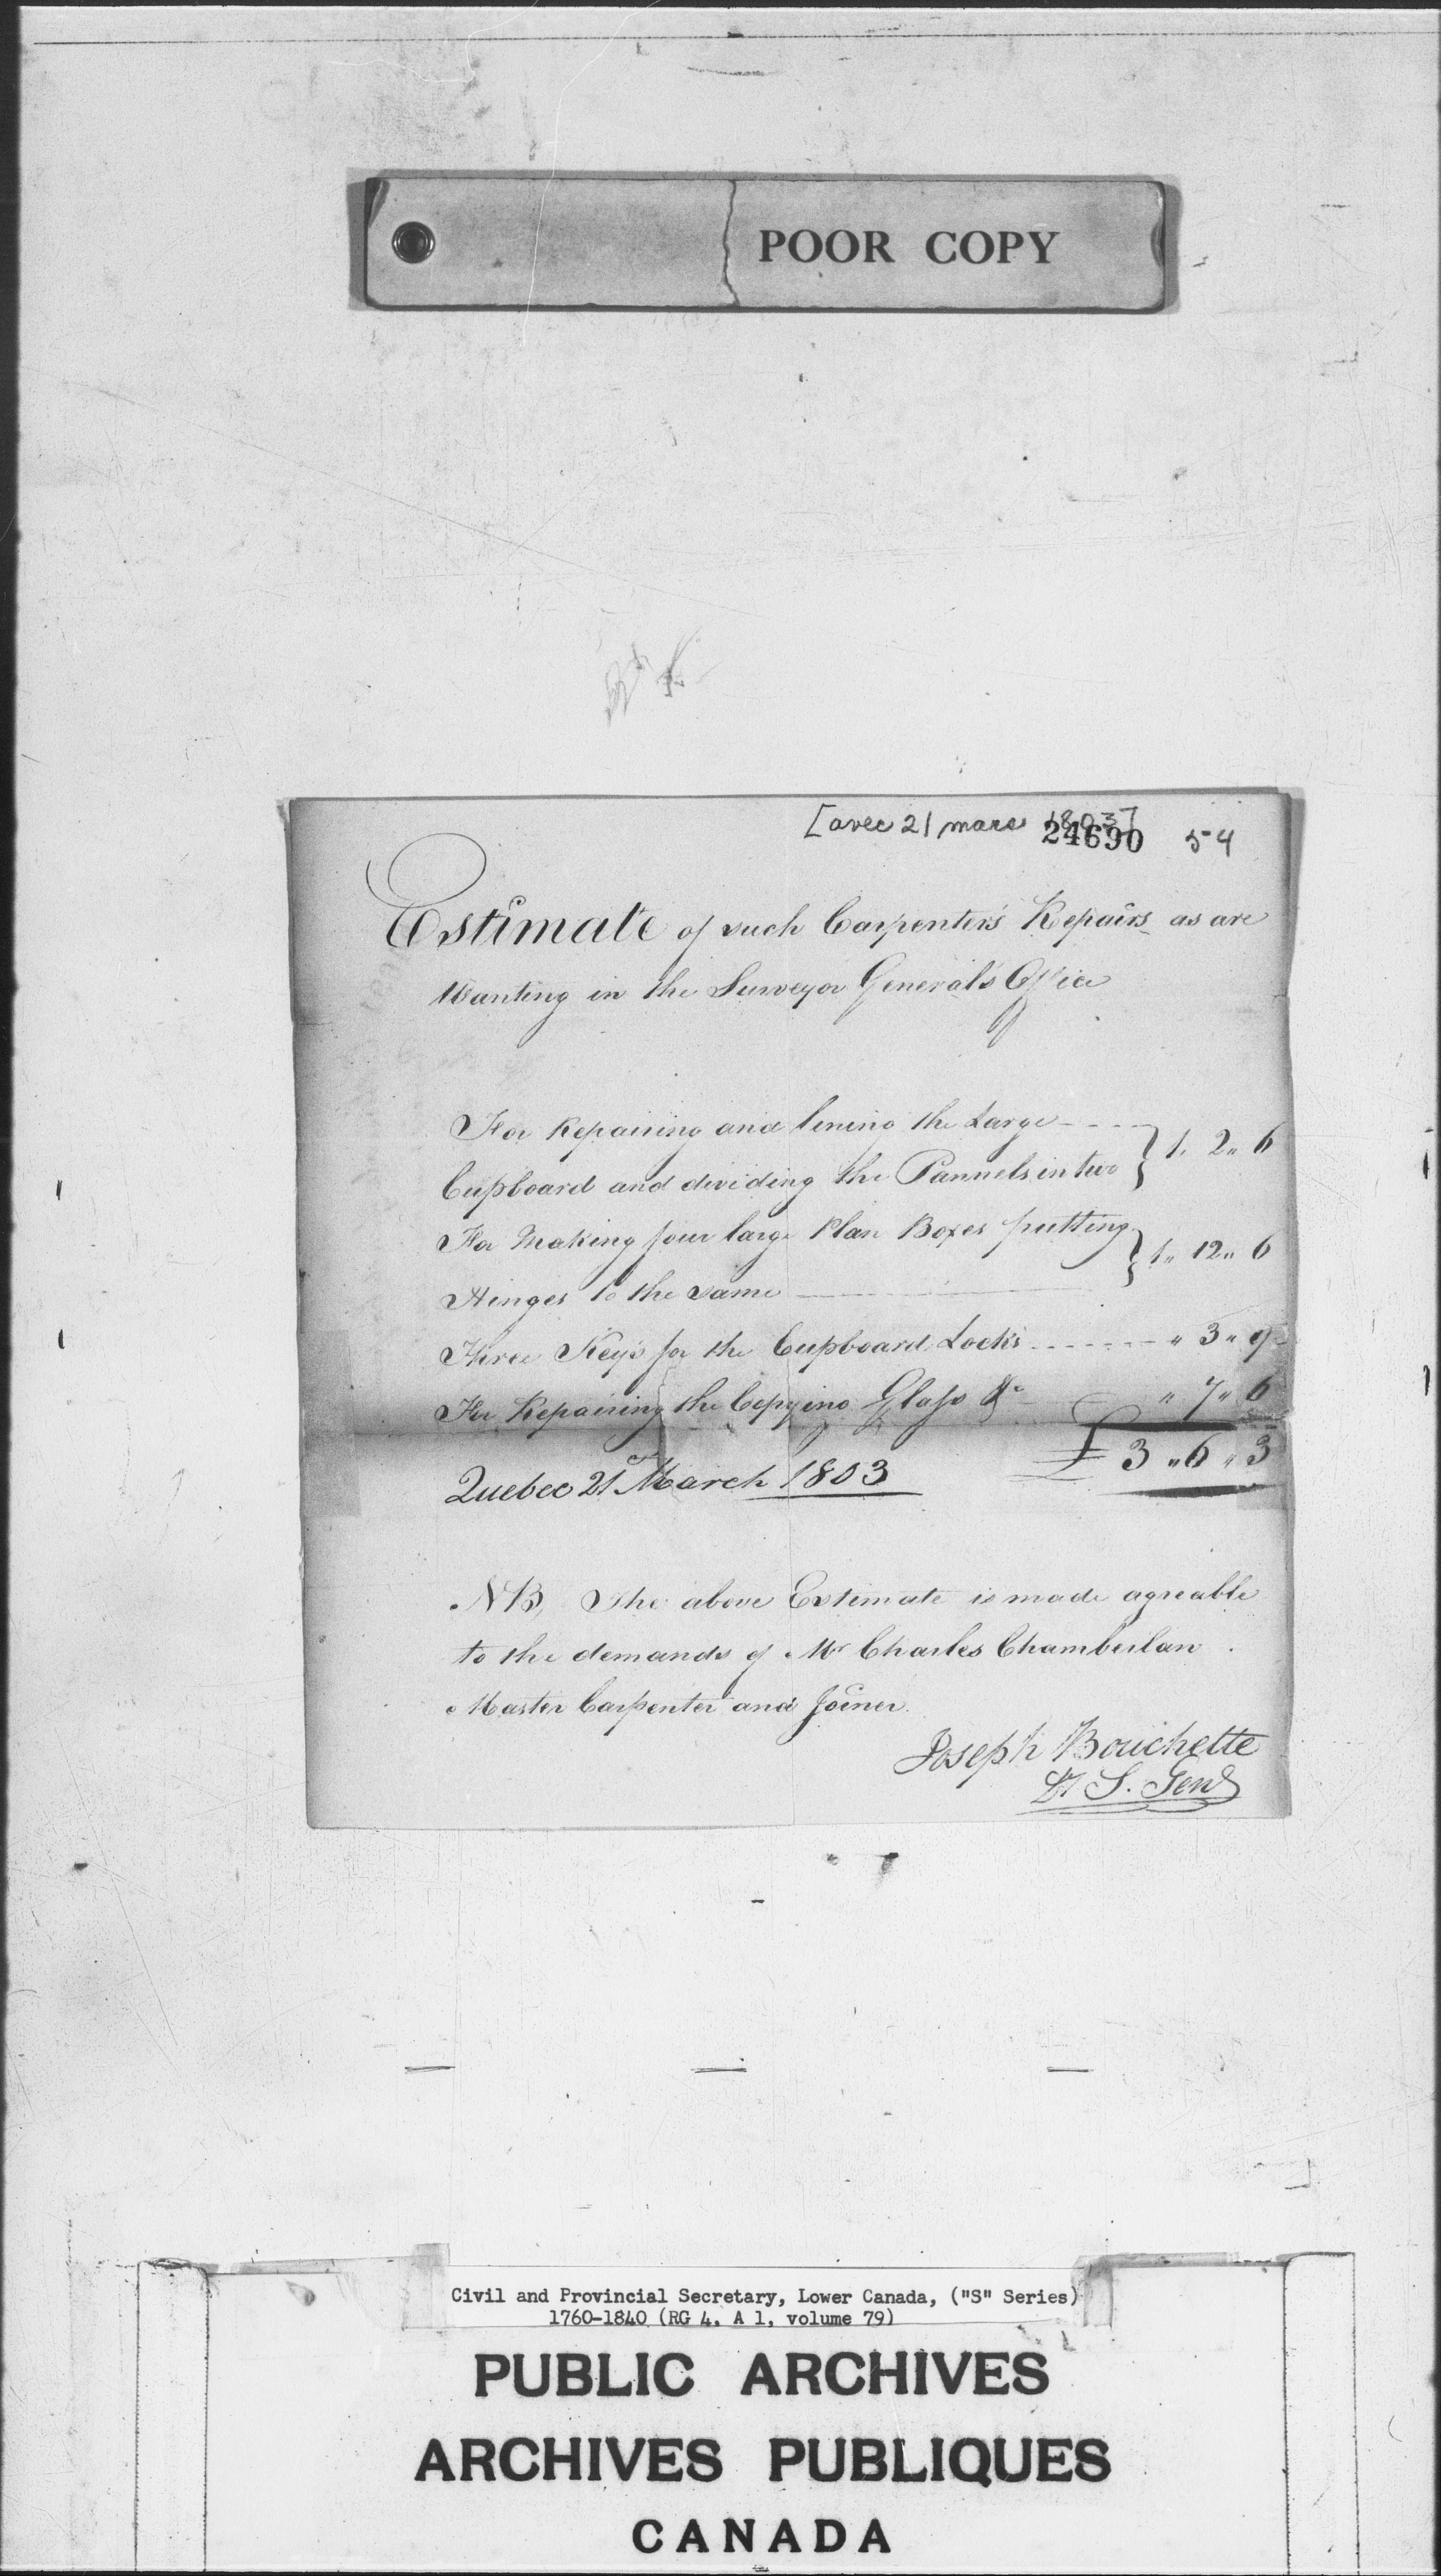 POOR COPY
[avec 21 mars 1803]
24690 54
Estimate of such Carpenter's Repairs as are
Wanting in the Surveyor General's Office
For Repairing and lining the Large
Cupboard and dividing the Pannels in two } 1, 2" 6
For Making four large Plan Boxes putting
Hinges to the same } 1" 12" 6
Three Keys for the Cupboard Locks " 3 " 9
For Repairing the Copying Glass &c " 7 " 6
£ 3 " 6 " 3
Quebec 21st March 1803
NB, The above Estimate is made agreable
to the demands of Mr Charles Chamberlan
Master Carpenter and Joiner.
Joseph Bouchette
Dy S. Genl
Civil and Provincial Secretary, Lower Canada, ("S" Series)
1760-1840 (RG 4, A 1, volume 79)
PUBLIC ARCHIVES
ARCHIVES PUBLIQUES
CANADA